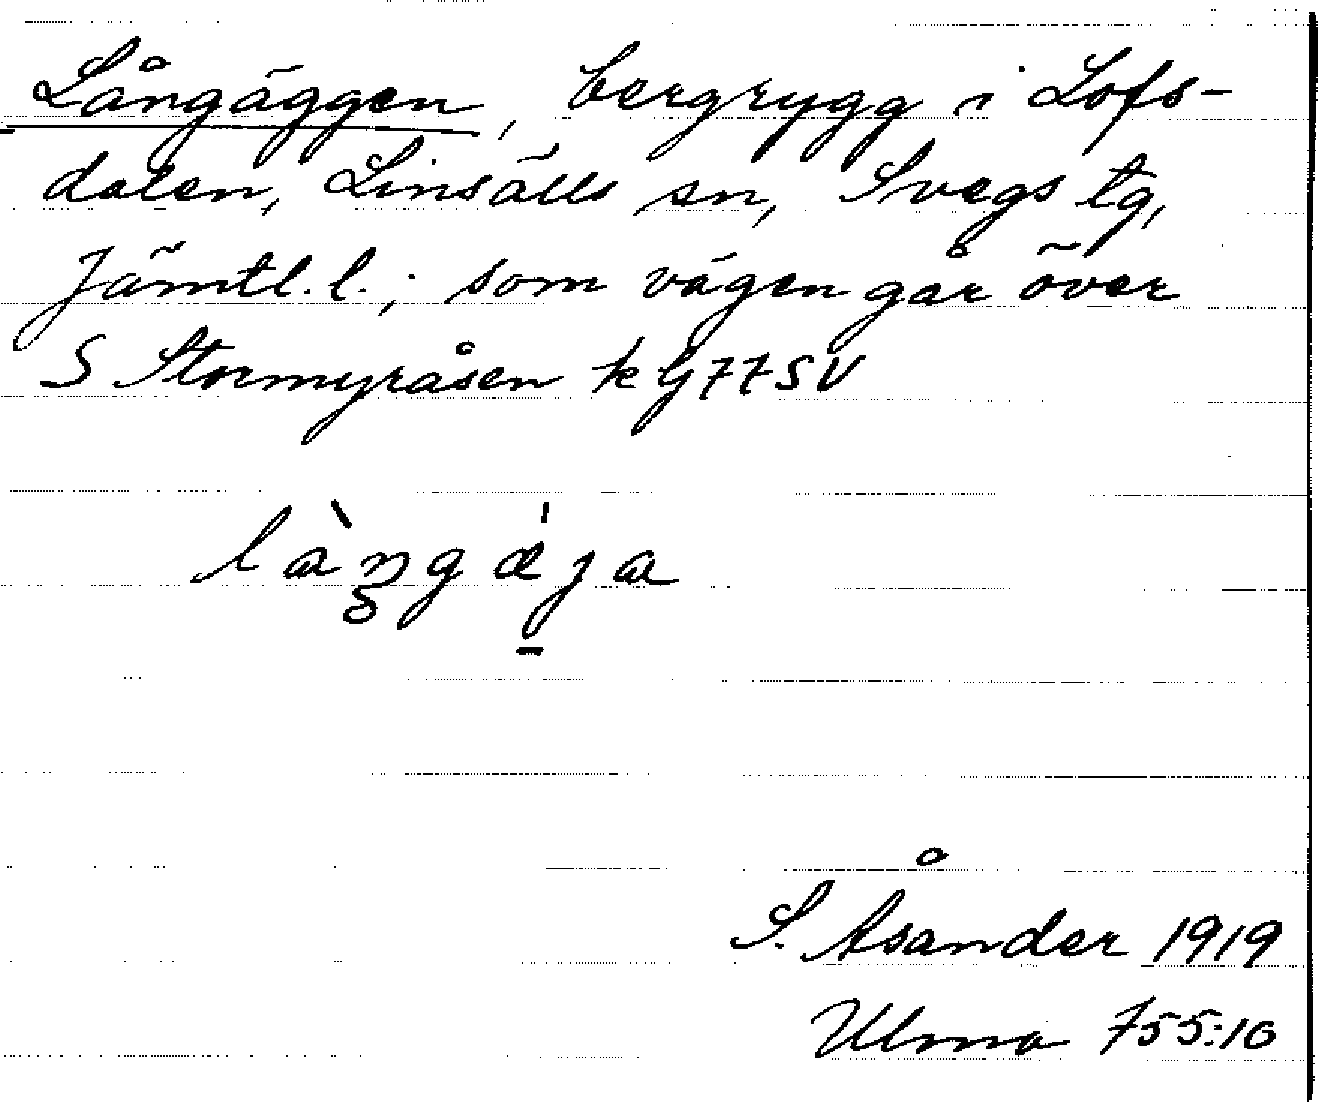 Långäggen, bergrygg i Lofs-
dalen, Linsälls sn, Svegs tg,
Jämtl. l.; som vägen går över
S Stormyråsen k G77SV
làŋgǽja
S. Åsander 1919
Ulma 755:10